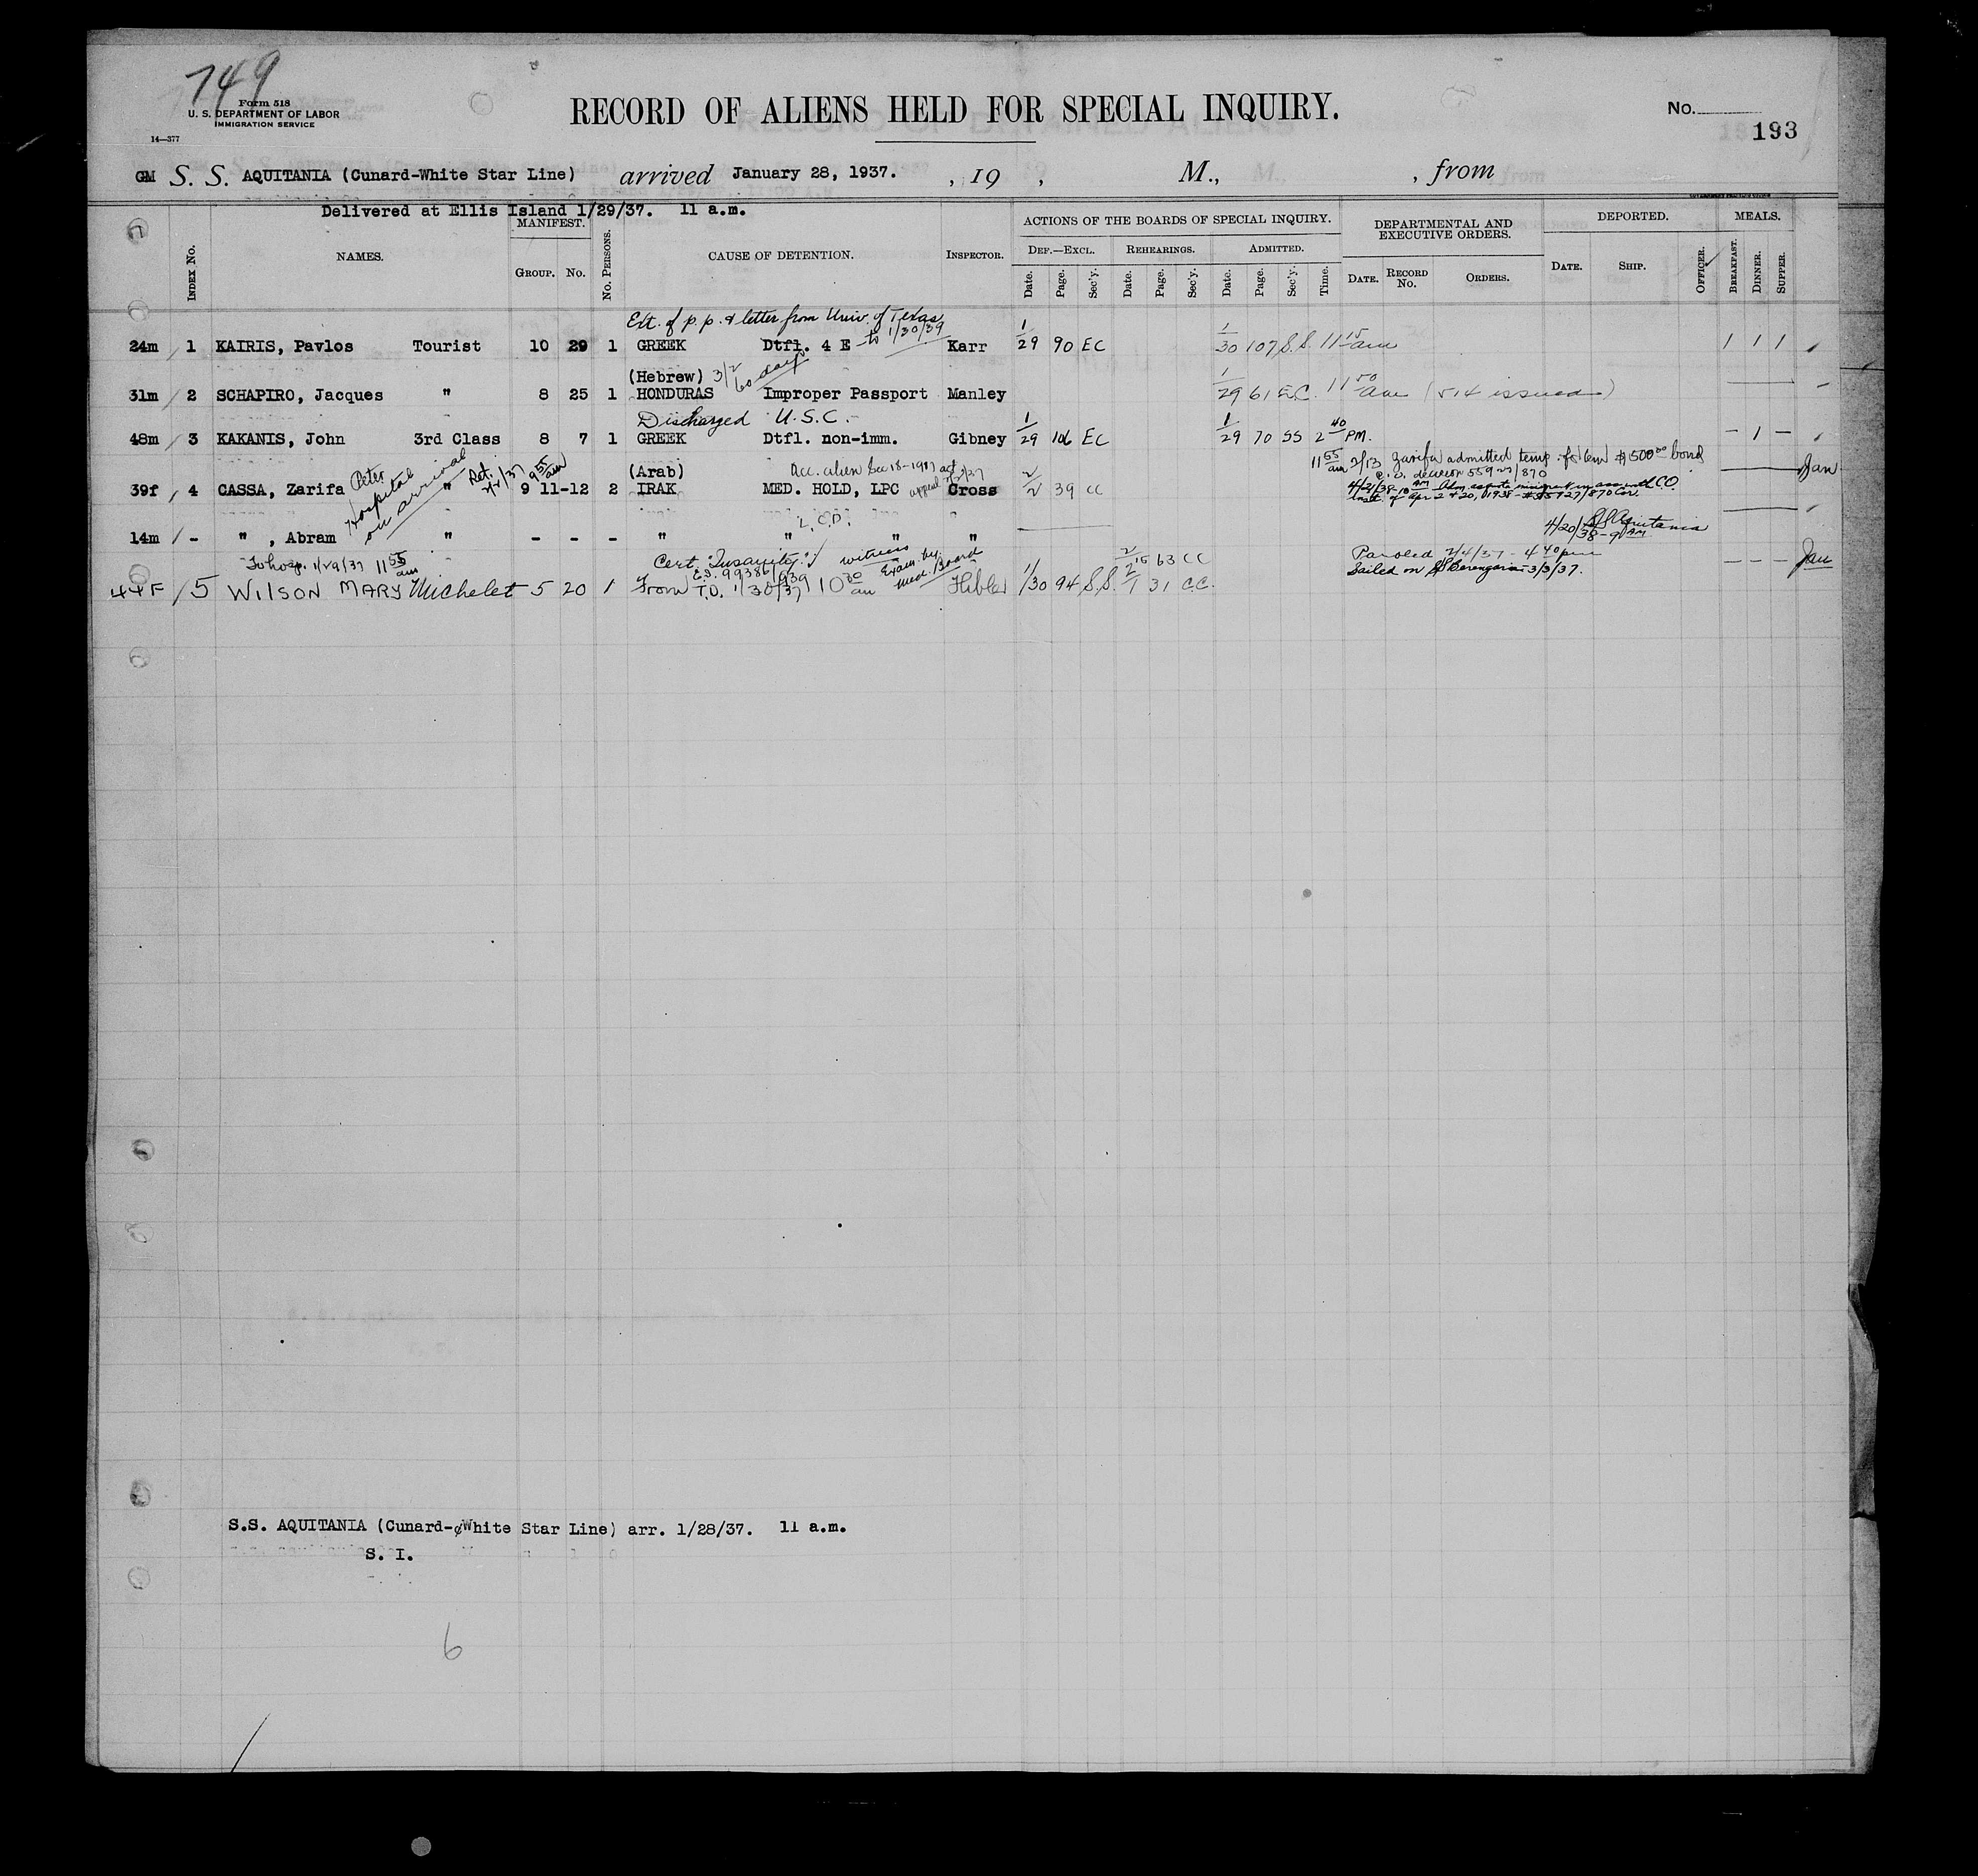 749
Form 518
U. S. DEPARTMENT OF LABOR
IMMIGRATION SERVICE
14—377
RECORD OF ALIENS HELD FOR SPECIAL INQUIRY.
No.
193
GM S. S. AQUITANIA (Cunard-White Star Line) arrived January 28, 1937. , 19 , M., , from
Delivered at Ellis Island 1/29/37. 11 a.m.
INDEX NO. NAMES. MANIFEST. GROUP. NO. NO. PERSONS. CAUSE OF DETENTION. INSPECTOR. ACTIONS OF THE BOARDS OF SPECIAL INQUIRY. DEPARTMENTAL AND EXECUTIVE ORDERS. DEPORTED. MEALS.
DEF.—EXCL. REHEARINGS. ADMITTED.
Date. Page. Sec'y. Date. Page. Sec'y. Date. Page. Sec'y. Time. DATE. RECORD No. ORDERS. DATE. SHIP. OFFICER. BREAKFAST. DINNER. SUPPER.
Ext. of p.p. & letter from Univ. of Texas
to 1/30/39
24m / 1 KAIRIS, Pavlos Tourist 10 29 1 GREEK Dtfl. 4 E Karr 1/29 90 EC 1/30 107 S.S. 11 15 am 1 1 1
(Hebrew) 3/2 60 days
31m / 2 SCHAPIRO, Jacques " 8 25 1 HONDURAS Improper Passport Manley 1/29 61 E.C. 11 50 am (514 issued)
Discharged U.S.C.
48m / 3 KAKANIS, John 3rd Class 8 7 1 GREEK Dtfl. non-imm. Gibney 1/29 106 EC 1/29 70 SS 2 40 PM. - 1 -
Peter Hospital on arrival Ret. 2/2/37 9 55 am
(Arab) Acc. alien Sec 18-1917 act
appeal 2/2/37
11 55 am 2/13 Zarifa admitted temp. for 6m $500 00 bond
C.O. decision 559 27/870
39f / 4 CASSA, Zarifa " 9 11-12 2 IRAK MED. HOLD, LPC Cross 2/2 39 CC
4/21/38-10 AM Adm. as quota immigrant in acc. with C.O.
of Apr 2 & 20, 1938 - #55927/870
L.C.D.
14m / - " , Abram " - - - " " " "
4/20/38-9 AM SS Aquitania
To hosp. 1/29/37 11 55 am
Cert. Insanity: witness Exam. by Med. Board
E.I. 99386/939
2/15 63 CC
Paroled 2/4/37 - 4 40 pm
Sailed on SS Berengaria - 3/3/37.
44F / 5 WILSON MARY Michelet 5 20 1 From T.D. 1/30/37 10 30 am Hibler 1/30 94 S.S. 2/1 31 C.C. - - -
S.S. AQUITANIA (Cunard-White Star Line) arr. 1/28/37. 11 a.m.
S. I.
6